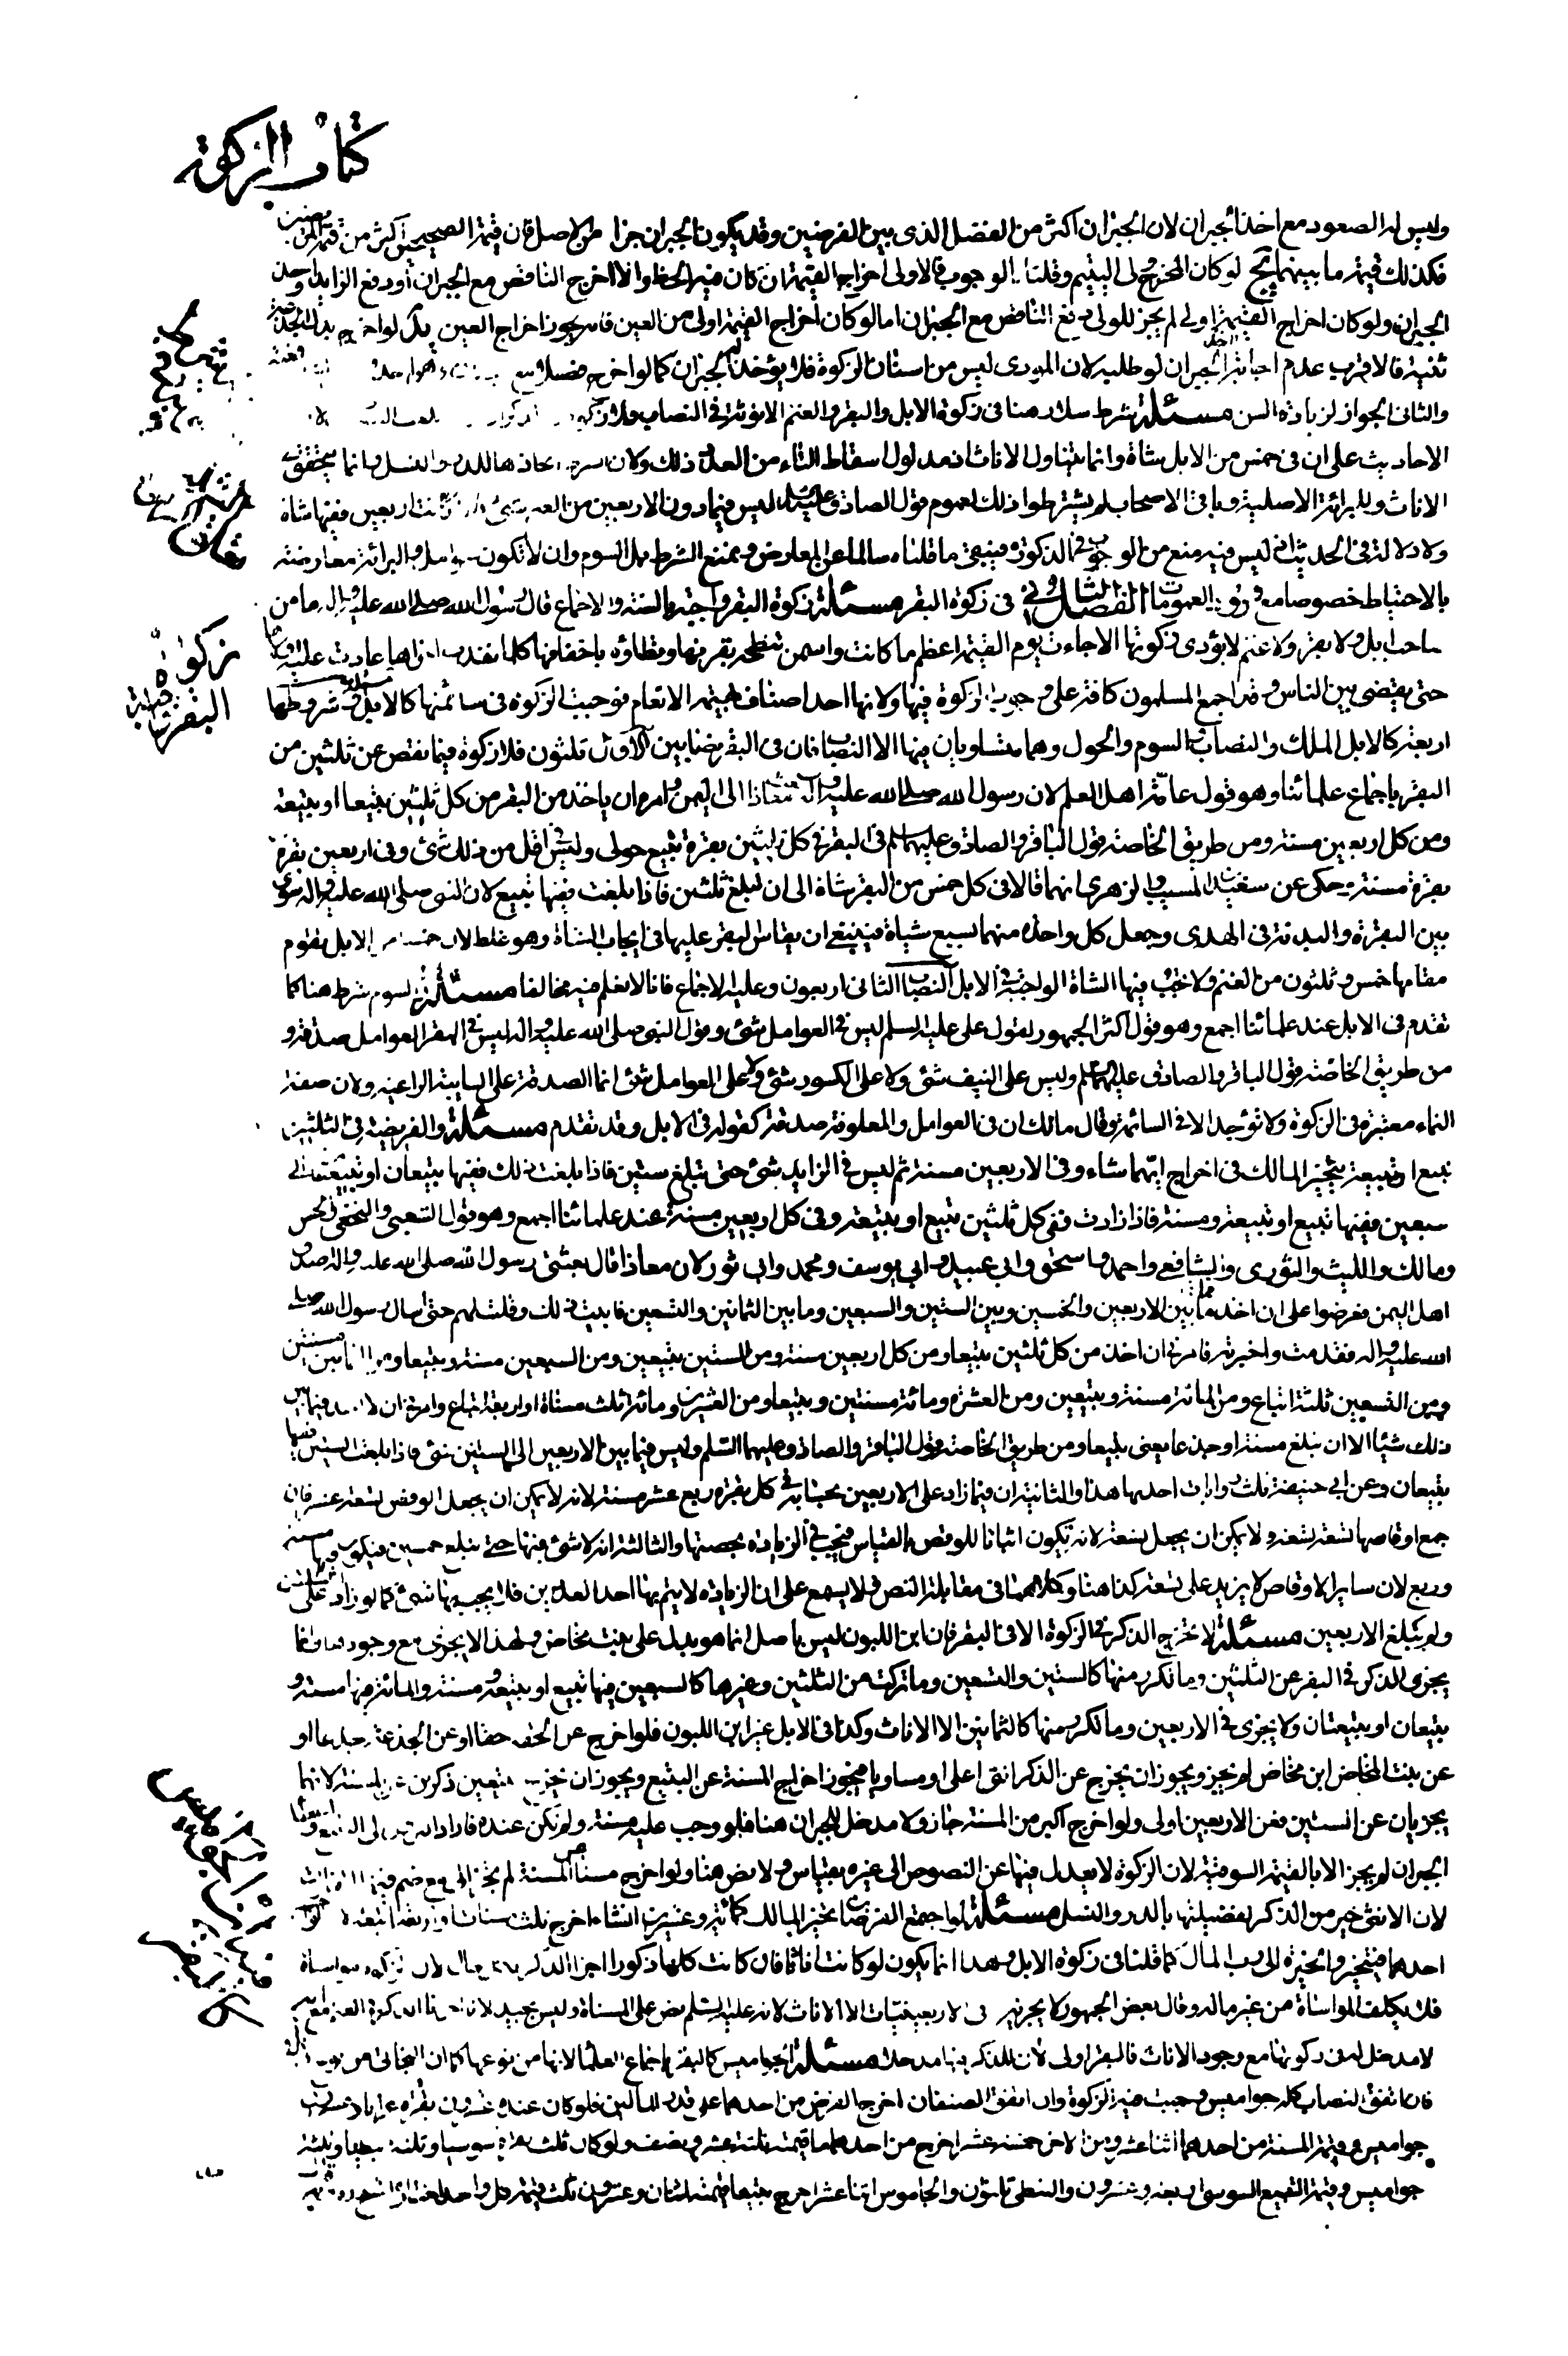 كتاب الزكوة
وليس له الصعود مع اخذ الجبران لان الجبران اكثر من الفضل الذى بين الفرضين وقد يكون الجبران جزا من الاصل فان قيمة الصحيحين اكثر من قيمة المريضين
فكذلك قيمة ما بينهما يح لو كان المخرج ولى اليتيم وقلنا بالوجوب فالاولى اخراج القيمة ان كان فيه الحظ والا اخرج الناقص مع الجبران او دفع الزايد واخذ
الجبران ولو كان اخراج القيمة اولى لم يجز للولى دفع الناقص مع الجبران اما لو كان اخراج القيمة اولى من العين فانه يجوز اخراج العين يد لو اخرج بدل الجذعة
ثنية فالاقرب عدم اجابة اخذ الجبران لو طلبه لان المودى ليس من اسنان الزكوة فلا يؤخذ الجبران كما لو اخرج فصيلا مع
والثانى الجواز لزيادة السن مسئلة شرط سلار هنا فى زكوة الابل والبقر والغنم الانوثة فى النصاب فلا زكوة
الاحاديث على ان فى خمس من الابل شاة وانما يتناول الاناث اذ مدلول اسقاط التاء من العدد ذلك ولان اتخاذها للدر والنسل وانما يتحقق فى
الاناث وللبرائة الاصلية وباقى الاصحاب لم يشترطوا ذلك لعموم قول الصادق عليه السلم ليس فيما دون الاربعين من الغنم شئ فاذا كانت اربعين ففيها شاة
ولا دلالة فى الحديث اذ ليس فيه منع من الوجوب فى الذكورة فيبقى ما قلناه سالما عن المعارض ويمنع الشرط بل السوم وان لا تكون عوامل والبرائة معارضة
بالاحتياط خصوصا مع ورود العمومات الفصل الثانى فى زكوة البقر مسئلة زكوة البقر واجبة بالسنة والاجماع قال رسول الله صلى الله عليه واله ما من
صاحب ابل ولا بقر ولا غنم لا يؤدى زكوتها الا جاءت يوم القيمة اعظم ما كانت واسمن تنطحه بقرونها وتطاؤه باخفافها كلما نفدت اخراها عادت عليه اولاها
حتى يقضى بين الناس وقد اجمع المسلمون كافة على وجوب الزكوة فيها ولانها احد اصناف بهيمة الانعام فوجبت الزكوة فى سائمتها كالابل مسئلة وشروطها
اربعة كالابل الملك والنصاب والسوم والحول وهما متساويان فيها الا النصاب فان فى البقر نصابين الاول ثلثون فلا زكوة فيما نقص عن ثلثين من
البقر باجماع علمائنا وهو قول عامة اهل العلم لان رسول الله صلى الله عليه واله بعث معاذا الى اليمن وامره ان ياخذ من البقر من كل ثلثين تبيعا او تبيعة
ومن كل اربعين مسنة ومن طريق الخاصة قول الباقر والصادق عليهما السلم فى البقر فى كل ثلثين بقرة تبيع حولى وليس فى اقل من ذلك شئ وفى اربعين بقرة
بقرة مسنة وحكى عن سعيد بن المسيب والزهرى انهما قالا فى كل خمس من البقر شاة الى ان تبلغ ثلثين فاذا بلغت ففيها تبيع لان النبى صلى الله عليه واله سوى
بين البقرة والبدنة فى الهدى وجعل كل واحدة منهما بسبع شياة فينبغى ان يقاس البقر عليها فى ايجاب الشاة وهو غلط لان خمسا من الابل يقوم
مقامها خمس وثلثون من الغنم ولا تجب فيها الشاة الواجبة فى الابل النصاب الثانى اربعون وعليه الاجماع فانا لا نعلم فيه مخالفا مسئلة السوم شرط هنا كما
تقدم فى الابل عند علمائنا اجمع وهو قول اكثر الجمهور لقول على عليه السلم ليس فى العوامل شئ وقول النبى صلى الله عليه واله ليس فى البقر العوامل صدقة و
من طريق الخاصة قول الباقر والصادق عليهما السلم وليس على النيف شئ ولا على الكسور شئ ولا على العوامل شئ انما الصدقة على السايمة الراعية ولان صفة
النماء معتبرة فى الزكوة ولا توجد الا فى السائمة وقال مالك ان فى العوامل والمعلوفة صدقة كقوله فى الابل وقد تقدم مسئلة والفريضة فى الثلثين
تبيع او تبيعة يتخير المالك فى اخراج ايهما شاء وفى الاربعين مسنة ثم ليس فى الزايد شئ حتى تبلغ ستين فاذا بلغت ذلك ففيها تبيعان او تبيعتان الى
سبعين ففيها تبيع او تبيعة ومسنة فاذا زادت ففى كل ثلثين تبيع او تبيعة وفى كل اربعين مسنة عند علمائنا اجمع وهو قول الشعبى والنخعى والحسن
ومالك والليث والثورى والشافعى واحمد واسحق وابى عبيد وابى يوسف ومحمد وابى ثور لان معاذا قال بعثنى رسول الله صلى الله عليه واله اصدق
اهل اليمن فعرضوا على ان اخذ مما بين الاربعين والخمسين وبين الستين والسبعين وما بين الثمانين والتسعين فابيت ذلك وقلت لهم حتى اسال رسول الله صلى
الله عليه واله فقدمت واخبرته فامرنى ان اخذ من كل ثلثين تبيعا ومن كل اربعين مسنة ومن الستين تبيعين ومن السبعين مسنة وتبيعا ومن الثمانين مسنتين
ومن التسعين ثلثة اتباع ومن المائة مسنة وتبيعين ومن العشرة ومائة مسنتين وتبيعا ومن العشرين ومائة ثلث مسنات او اربعة اتباع وامرنى ان لا اخذ فيما بين
ذلك شيئا الا ان تبلغ مسنة او جذعا يعنى تبيعا ومن طريق الخاصة قول الباقر والصادق عليهما السلم وليس فيما بين الاربعين الى الستين شئ فاذا بلغت الستين ففيها
تبيعان وعن ابى حنيفة ثلث روايات احديها هذا والثانية ان فيما زاد على الاربعين بحسابه فى كل بقرة ربع عشر مسنة لانه لا يمكن ان يجعل الوقص تسعة عشر فان
جميع اوقاصها تسعة تسعة ولا يمكن ان يجعل تسعة لانه تكون اثباتا للوقص بالقياس فيجب فى الزيادة بحصتها والثالثة انه لا شئ فيها حتى تبلغ خمسين فيكون فيها مسنة
وربع لان ساير الاوقاص لا يزيد على تسعة كذا هنا وكلاهما فى مقابلة النص فلا يسمع على ان الزيادة لا يتم بها احد العددين فلا يجب فيها شئ كما لو زاد على ثلثين
ولم تبلغ الاربعين مسئلة لا تخرج الذكر فى الزكوة الا فى البقر فان ابن اللبون ليس باصل انما هو بدل على بنت مخاض ولهذا لا يجزى مع وجودها وانما
يجزى الذكر فى البقر عن الثلثين وما تكرر منها كالستين والتسعين وما تركب من الثلثين وغيرها كالسبعين فيها تبيع او تبيعة ومسنة والمائة فيها مسنة و
تبيعان او تبيعتان ولا يجزى فى الاربعين وما تكرر منها كالثمانين الا الاناث وكذا فى الابل غير ابن اللبون فلو اخرج عن الحقة حقا او عن الجذعة جذعا او
عن بنت المخاض ابن مخاض لم يجز ويجوز ان يخرج عن الذكر انثى اعلى او مساويا فيجوز اخراج المسنة عن التبيع ويجوز ان يخرج تبيعين ذكرين عن المسنة لانهما
يجزيان عن الستين فعن الاربعين اولى ولو اخرج اكبر من المسنة جاز ولا مدخل للجبران هنا فلو وجب عليه مسنة ولم تكن عنده فاراد ان ينزل الى التبيع ويدفع
الجبران لم يجز الا بالقيمة السوقية لان الزكوة لا يعدل فيها عن النصوص الى غيره بقياس ولا نص هنا ولو اخرج مسنا عن المسنة لم يجز الا مع ضم قيمة التفاوت
لان الانثى خير من الذكر لفضيلتها بالدر والنسل مسئلة لو اجتمع الفرضان تخير المالك كمائة وعشرين ان شاء اخرج ثلث مسنات او اربعة اتبعة
احدهما فيتخير والخيرة الى رب المال كما قلنا فى زكوة الابل وهذا انما يكون لو كانت اناثا فان كانت كلها ذكورا اجزا الذكر بكل حال لان الزكوة مواساة
فلا يكلف المواساة من غير ماله وقال بعض الجمهور لا يجزيه فى الاربعينيات الا الاناث لانه عليه السلم نص على المسناة وليس بجيد لانا
لا مدخل له فى زكوتها مع وجود الاناث فالبقر اولى لان للذكر فيها مدخلا مسئلة الجواميس كالبقر باجماع العلما لانها من نوعها كما ان البخاتى من نوع الابل
فان اتفق النصاب كله جواميس وجبت فيه الزكوة وان اتفق الصنفان اخرج الفرض من احدهما على قدر المالين فلو كان عنده عشرون بقرة وعشرون
جواميس وقيمة المسنة من احدهما اثنا عشر ومن الاخر خمسة عشر اخرج من احدهما ما قيمته ثلثة عشر ونصف ولو كان ثلث
جواميس وقيمة التبيع السوسى اربعة وعشرون والنبطى ثلثون والجاموس اثنا عشر اخرج تبيعا قيمته اثنان وعشرون ثلث قيمة كل واحد
زكوة
البقر